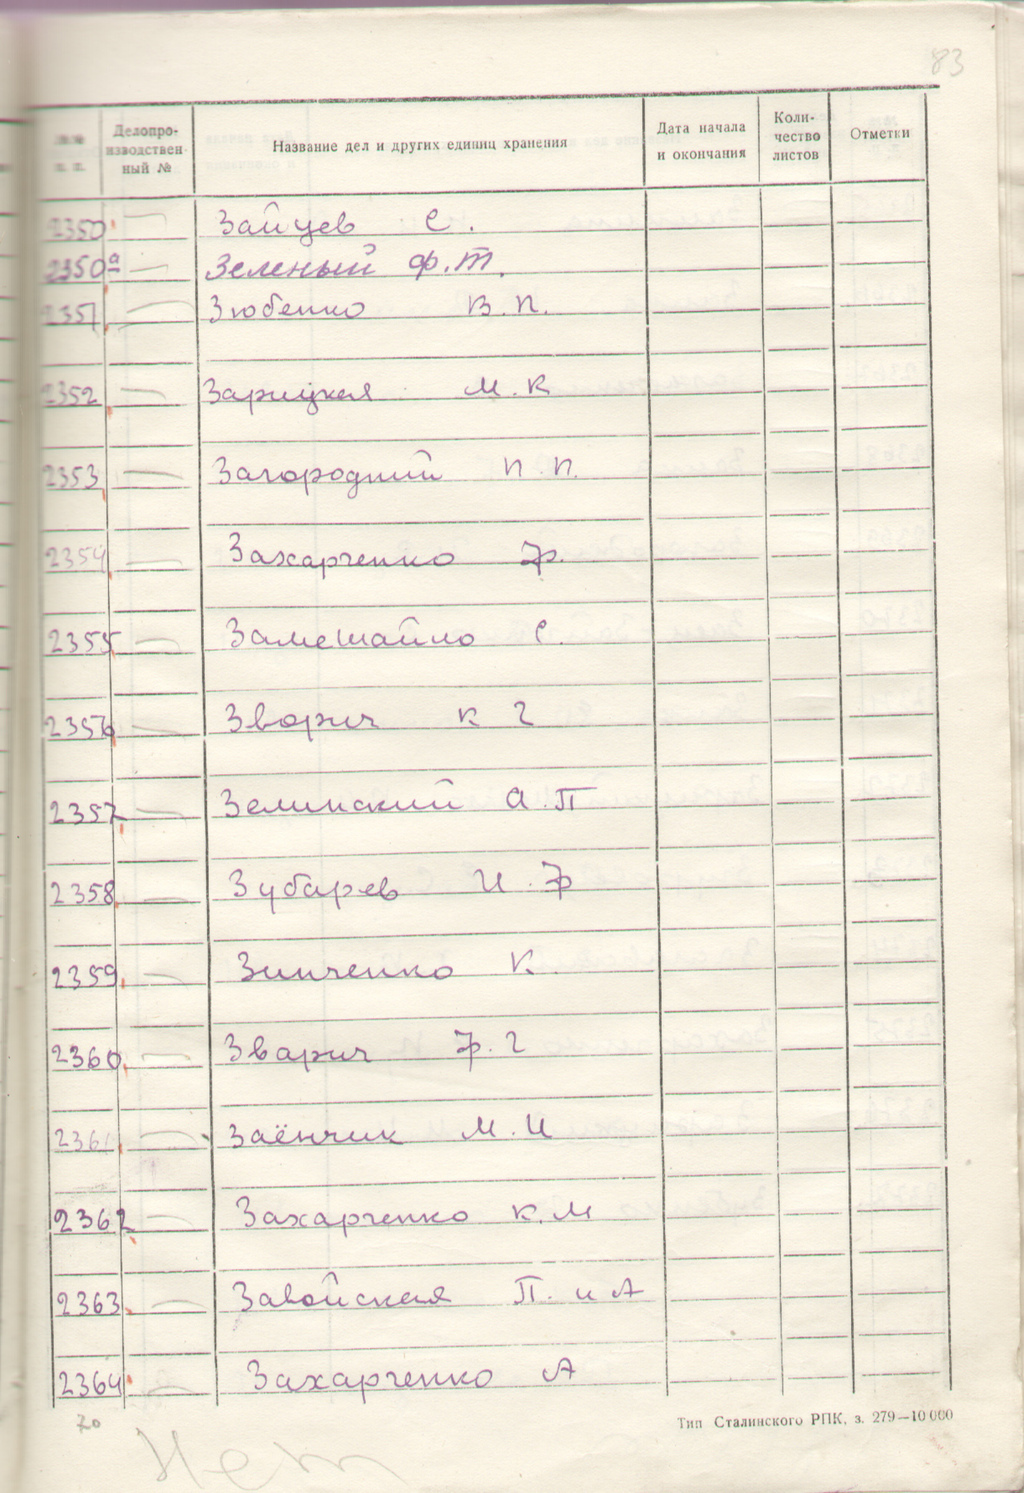 83
№№ п. п. Делопро-изводствен-ный № Название дел и других единиц хранения Дата начала и окончания Коли-чество листов Отметки
2350 — Зайцев С.
2350а — Зеленый Ф.Т.
2351 — Зюбенко В.П.
2352 — Зарицкая М.К
2353 — Загородний П.П.
2354 — Захарченко Ф.
2355 — Замешайло С.
2356 — Зворич К Г
2357 — Зелинский А.П
2358 — Зубарев И.Ф
2359 — Зинченко К.
2360 — Зварич Ф.Г
2361 — Заёнчик М.И
2362 — Захарченко К.М
2363 — Завойская П. и А
2364 — Захарченко А
Тип Сталинского РПК, з. 279—10 000
70
Нет